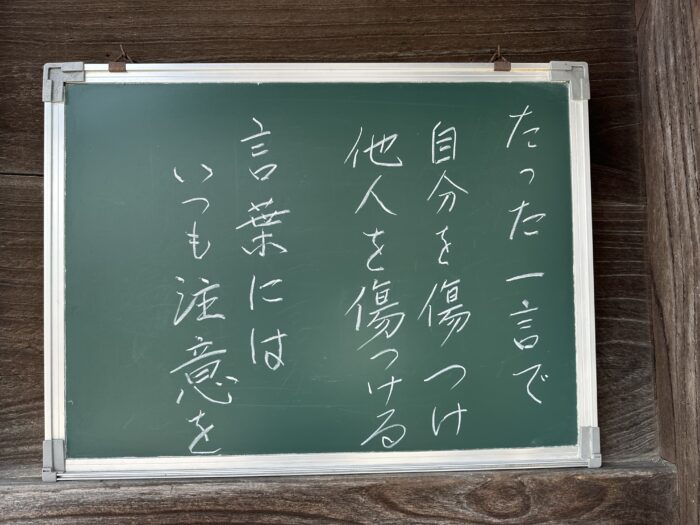 たった一言で
自分を傷つけ
他人を傷つける
言葉には
いつも注意を